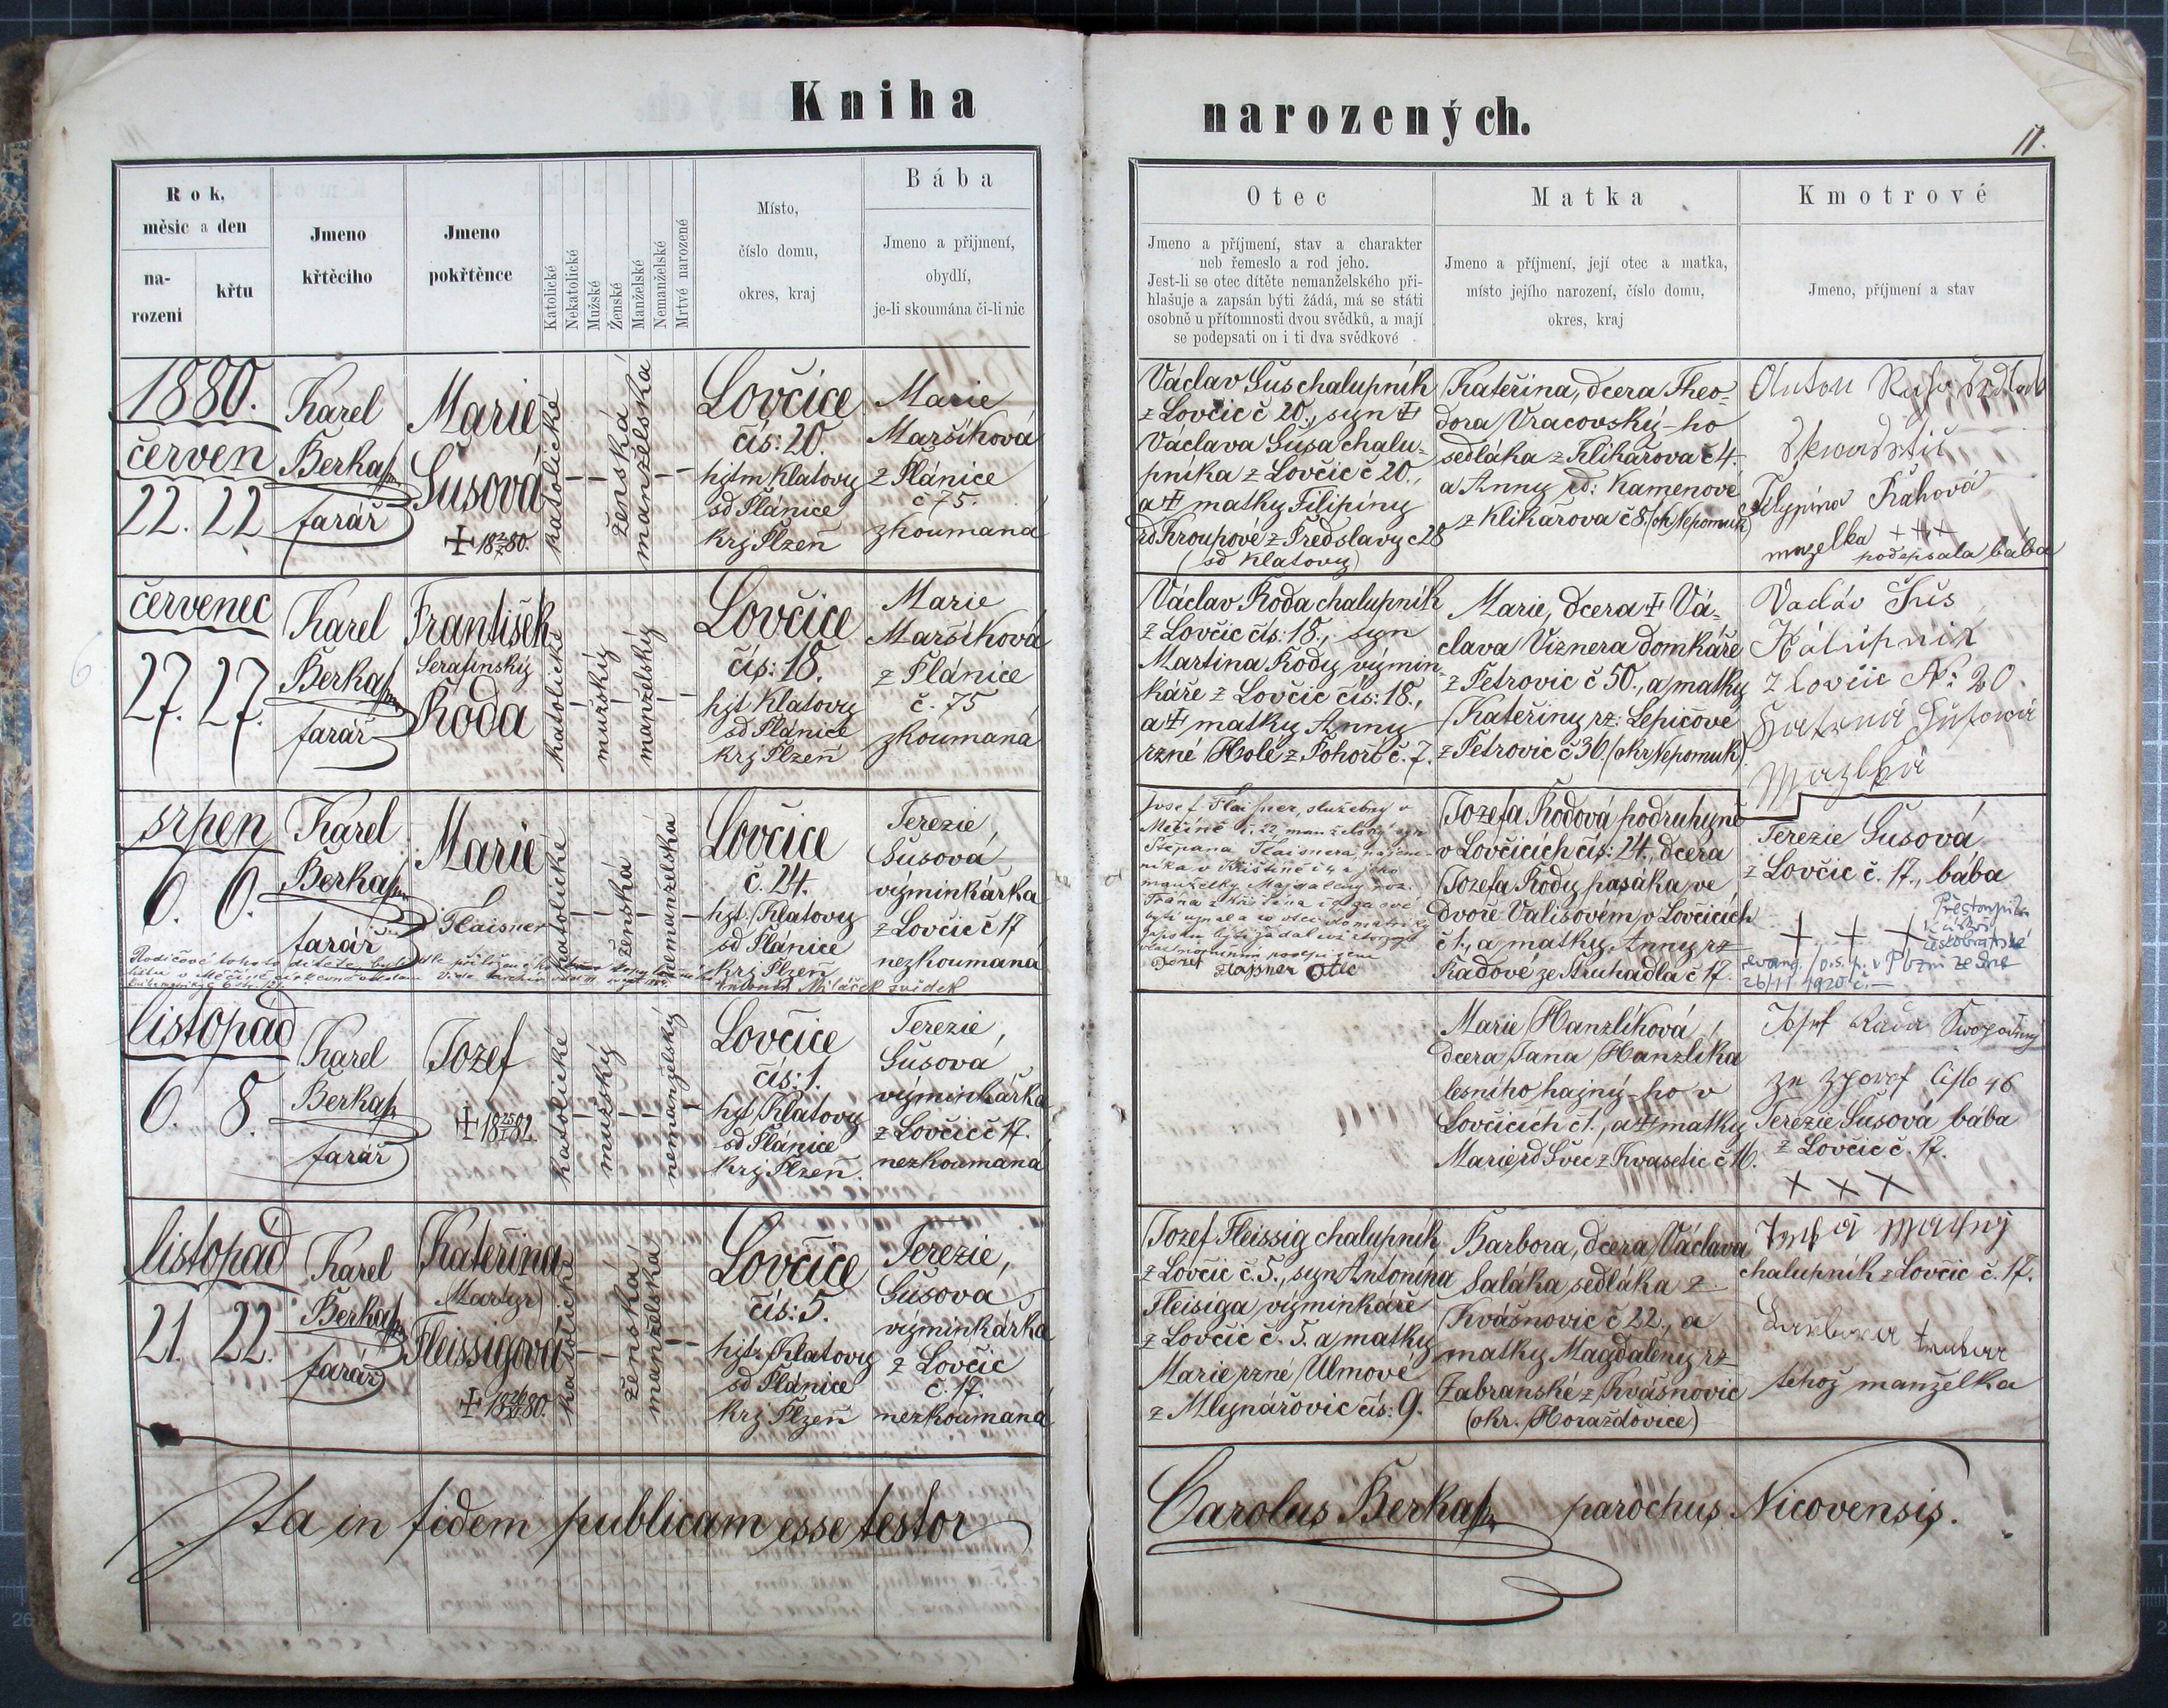 Kniha
narozených.
11.
Rok,
měsíc a den
na-
rozeni
křtu
Jmeno
křtěcího
Jmeno
pokřtěnce
Katolické
Nekatolické
Mužské
Ženské
Manželské
Nemanželské
Mrtvě narozené
Místo,
číslo domu,
okres, kraj
Bába
Jmeno a přijmení,
obydlí,
je-li skoumána či-li nic
Otec
Jmeno a příjmení, stav a charakter
neb řemeslo a rod jeho.
Jest-li se otec dítěte nemanželského při-
hlašuje a zapsán býti žádá, má se státi
osobně u přítomnosti dvou svědků, a mají
se podepsati on i ti dva svědkové
Matka
Jmeno a příjmení, její otec a matka,
místo jejího narození, číslo domu,
okres, kraj
Kmotrové
Jmeno, příjmení a stav
1880.
červen
22. 22
Karel
Berkaß
farář
Marie
Šusová
katolické
ženská
manželská
Lovčice
čís: 20.
hjtm Klatovy
sd Plánice
krj Plzeň
Marie
Maršíková
z Plánice
č 75.
zkoumaná
Václav Šus chalupník
z Lovčic č 20., syn
Václava Šusa chalu-
pníka z Lovčic č 20.,
a matky Filipíny
rd Kroupové z Předslavy č 28
(sd Klatovy)
Kateřina, dcera Theo-
dora Vracovský-ho
sedláka z Klikařova č 4.
a Anny rd: Kamenové
z Klikařova č 8. (ok Nepomuk)
Anton
Filypína
+++
podepsala bába
červenec
27. 27.
Karel
Berkaß
farář
František
Serafinský
Koda
katolické
mužský
manželský
Lovčice
čís: 18.
hjt Klatovy
sd Plánice
krj Plzeň
Marie
Maršíková
z Plánice
č. 75
zkoumaná
Václav Koda chalupník
z Lovčic čís: 18., syn
Martina Kody, výmin-
káře z Lovčic čís: 18.,
a matky Anny
rzné Holé z Pohoří č. 7.
Marie, dcera Vá-
clava Viznera domkáře
z Petrovic č 50., a matky
Kateřiny rz: Lepičové
z Petrovic č 36. (okr Nepomuk)
Vacláv Šus
Hálupnik
z lovčic N: 20.
srpen
6. 6.
Karel
Berkaß
farář
Marie
Flaisner
katolické
ženská
nemanželská
Lovčice
č. 24.
hjt. Klatovy
sd Plánice
krj Plzeň
Terezie,
Šusová
výminkářka
z Lovčic č 17
nezkoumaná
Rodičové tohoto dítěte byli
svědek
Josef Flaisner, služebný v
Měčíně č. 22, manželský syn
Štěpana Flaisnera,
manželky Majdaleny roz.
Josef Flajsner Otec
Jozefa Kodová podruhyně
v Lovčicích čís: 24., dcera
Jozefa Kody pasáka ve
dvoře Valisovém v Lovčicích
č 1., a matky Anny rz
Kadové ze Struhadla č 17.
Terezie Šusová
z Lovčic č. 17., bába
+ + +
českobratrské
evang.
26/11 1920
listopad
6. 8.
Karel
Berkaß
farář
Jozef
katolické
mužský
nemanželský
Lovčice
čís: 1.
hjt Klatovy
sd Plánice
krj Plzeň.
Terezie,
Šusová
výminkářka
z Lovčic č 17.
nezkoumaná
Marie Hanzlíková,
dcera Jana Hanzlíka
lesního hajný-ho v
Lovčicích č 1., a matky
Marie rd Švec z Kvasetic č 16.
Josef
46
Terezie Šusová bába
z Lovčic č. 17.
× × ×
listopad
21. 22.
Karel
Berkaß
farář
Kateřina
Martyr
Fleissigová
katolické
ženská
manželská
Lovčice
čís: 5.
hjt. Klatovy
sd Plánice
krj Plzeň
Terezie,
Šusová,
výminkářka
z Lovčic
č. 17.
nezkoumaná
Jozef Fleissig chalupník
z Lovčic č. 5., syn Antonína
Fleisiga výminkáře
z Lovčic č. 5. a matky
Marie rzné Ulmové
z Mlynářovic čís: 9.
Barbora, dcera Václava
Saláka sedláka z
Kvášňovic č 22., a
matky Magdalény rz
Zabranské z Kvášňovic
(okr. Horažďovice)
chalupník z Lovčic č. 17.
tehož manželka
Ita in fidem publicam esse testor
Carolus Berkaß parochus Nicovensis.